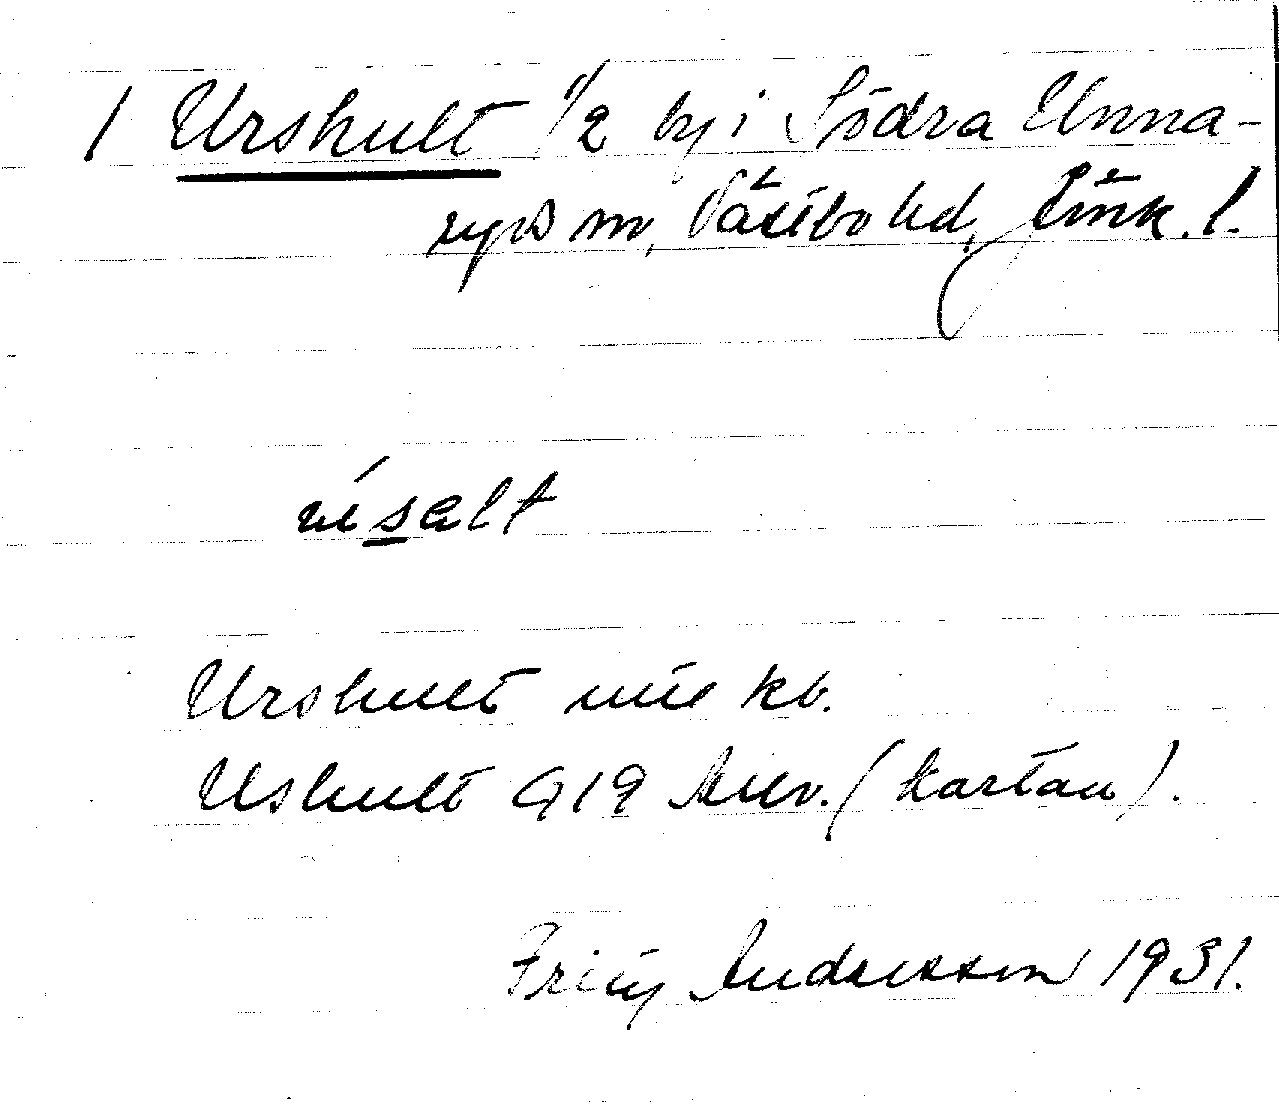 1 Urshult 1/2 by i Södra Unna-
ryds sn, Västbo hd, Jönk. l.
Urshult kb.
Ushult 919 Arev. (kartan).
Fritz Andersson 1931.